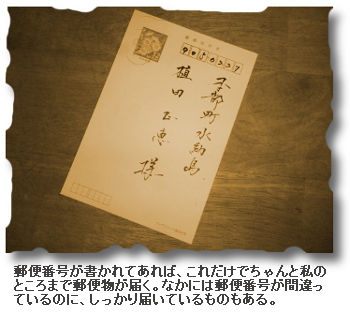 本部町水納島
植田正恵様
郵便番号が書かれてあれば、これだけでちゃんと私の
ところまで郵便物が届く。なかには郵便番号が間違っ
ているのに、しっかり届いているものもある。